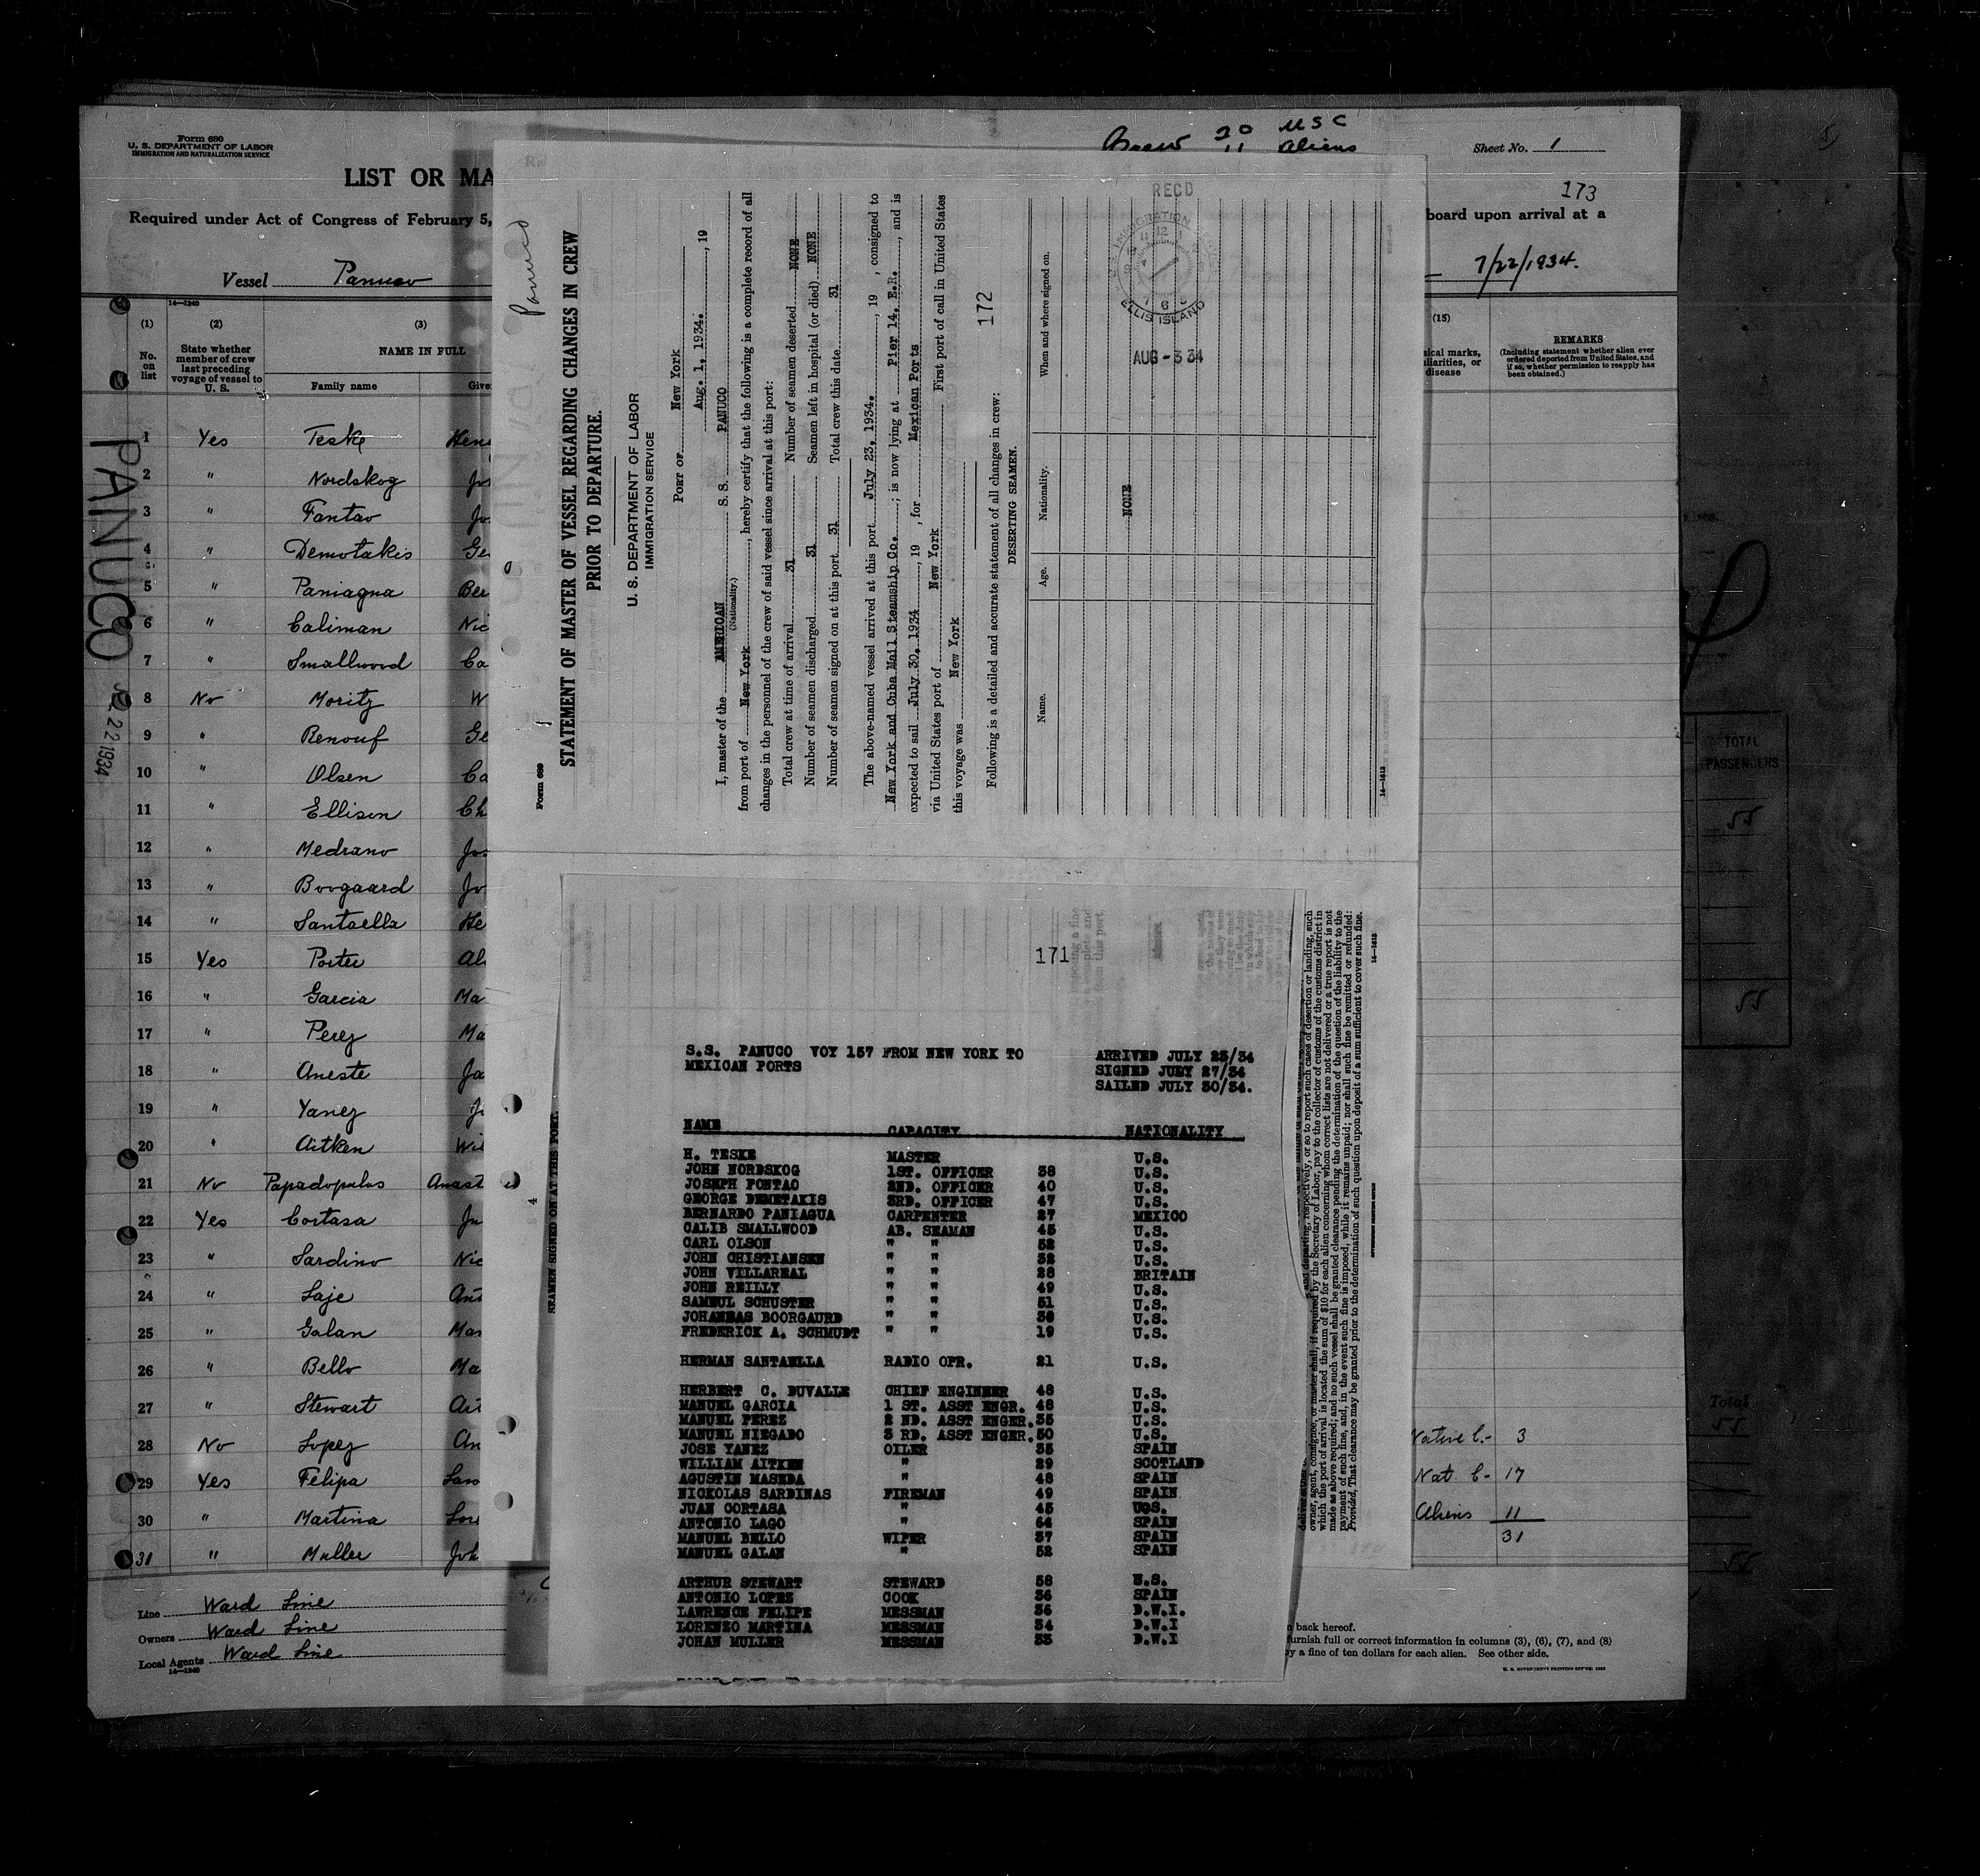 Form 680
U. S. DEPARTMENT OF LABOR
IMMIGRATION AND NATURALIZATION SERVICE
LIST OR MA
Required under Act of Congress of February 5,
Vessel Panuco
20 USC
11 Aliens
Sheet No. 1
173
board upon arrival at a
7/22/1934.
14—1240
(1) (2) (3)
No. on list
State whether member of crew last preceding voyage of vessel to U. S.
NAME IN FULL
Family name
Give
(15)
ical marks,
liarities, or
disease
REMARKS
(Including statement whether alien ever ordered deported from United States, and if so, whether permission to reapply has been obtained.)
PANUCO
22 1934
1 Yes Teske Hen
2 " Nordskog Jo
3 " Fantao Jo
4 " Demotakis Ge
5 " Paniagua Ber
6 " Caliman Nic
7 " Smallwood Ca
8 No Moritz W
9 " Renouf Ge
10 " Olsen Ca
11 " Ellison Ch
12 " Medrano Jo
13 " Boogaard Jo
14 " Santaella He
15 Yes Porter Al
16 " Garcia Ma
17 " Perez Ma
18 " Aneste Ja
19 " Yanez J
20 " Aitken Wil
21 No Papadopulos Anast
22 Yes Cortasa Ju
23 " Sardino Nic
24 " Laje Ant
25 " Galan Man
26 " Bello Ma
27 " Stewart Art
28 No Lopez An
29 Yes Felipa Law
30 " Martina Lor
31 " Muller Joh
Line Ward Line
Owners Ward Line
Local Agents Ward Line
14—1240
Panuco
Form 689
STATEMENT OF MASTER OF VESSEL REGARDING CHANGES IN CREW
PRIOR TO DEPARTURE.
U. S. DEPARTMENT OF LABOR
IMMIGRATION SERVICE
PORT OF New York
Aug. 1, 1934. , 19
I, master of the AMERICAN S. S. PANUCO
(Nationality.)
from port of New York, hereby certify that the following is a complete record of all
changes in the personnel of the crew of said vessel since arrival at this port:
Total crew at time of arrival 31 Number of seamen deserted NONE
Number of seamen discharged 31 Seamen left in hospital (or died) NONE
Number of seamen signed on at this port 31 Total crew this date 31
The above-named vessel arrived at this port July 23, 1934. , 19 , consigned to
New York and Cuba Mail Steamship Co. ; is now lying at Pier 14, E.R. , and is
expected to sail July 30, 1934 , 19 , for Mexican Ports
via United States port of New York First port of call in United States
this voyage was New York
172
Following is a detailed and accurate statement of all changes in crew:
DESERTING SEAMEN.
Name. Age. Nationality. When and where signed on.
NONE
RECD
ELLIS ISLAND
AUG -3 34
14—1613
SEAMEN SIGNED ON AT THIS PORT.
171
S.S. PANUCO VOY 157 FROM NEW YORK TO
MEXICAN PORTS
ARRIVED JULY 23/34
SIGNED JULY 27/34
SAILED JULY 30/34.
NAME CAPACITY NATIONALITY
H. TESKE MASTER U.S.
JOHN NORDSKOG 1ST. OFFICER 38 U.S.
JOSEPH FONTAO 2ND. OFFICER 40 U.S.
GEORGE DEMETAKIS 3RD. OFFICER 47 U.S.
BERNARDO PANIAGUA CARPENTER 27 MEXICO
CALIB SMALLWOOD AB. SEAMAN 45 U.S.
CARL OLSON " " 52 U.S.
JOHN CHISTIANSEN " " 32 U.S.
JOHN VILLAREAL " " 28 BRITAIN
JOHN REILLY " " 49 U.S.
SAMEUL SCHUSTER " " 51 U.S.
JOHANEAS BOORGAURD " " 38 U.S.
FREDERICK A. SCHMUDT " " 19 U.S.
HERMAN SANTAELLA RADIO OPR. 21 U.S.
HERBERT C. DUVALLE CHIEF ENGINEER 48 U.S.
MANUEL GARCIA 1 ST. ASST ENGR. 48 U.S.
MANUEL PEREZ 2 ND. ASST ENGER. 35 U.S.
MANUEL NIEGADO 3 RD. ASST ENGER. 50 U.S.
JOSE YANEZ OILER 35 SPAIN
WILLIAM AITKEN " 29 SCOTLAND
AGUSTIN MASEDA " 48 SPAIN
NICKOLAS SARDINAS FIREMAN 49 SPAIN
JUAN CORTASA " 45 U.S.
ANTONIO LAGO " 64 SPAIN
MANUEL BELLO WIPER 37 SPAIN
MANUEL GALAN " 52 SPAIN
ARTHUR STEWART STEWARD 58 U.S.
ANTONIO LOPEZ COOK 36 SPAIN
LAWRENCE FELIPE MESSMAN 36 D.W.I.
LORENZO MARTINA MESSMAN 34 D.W.I
JOHAN MULLER MESSMAN 33 D.W.I
owner, agent, consignee, or master shall, if required by the Secretary of Labor, pay to the collector of customs of the customs district in
which the port of arrival is located the sum of $10 for each alien concerning whom correct lists are not delivered or a true report is not
made as above required; and no such vessel shall be granted clearance pending the determination of the question of the liability to the
payment of such fine, and, in the event such fine is imposed, while it remains unpaid; nor shall such fine be remitted or refunded:
Provided, That clearance may be granted prior to the determination of such question upon deposit of a sum sufficient to cover such fine.
14—1613
Native C.- 3
Nat C- 17
Aliens 11
31
n back hereof.
urnish full or correct information in columns (3), (6), (7), and (8)
by a fine of ten dollars for each alien. See other side.
TOTAL
PASSENGERS
55
55
Total
55
55